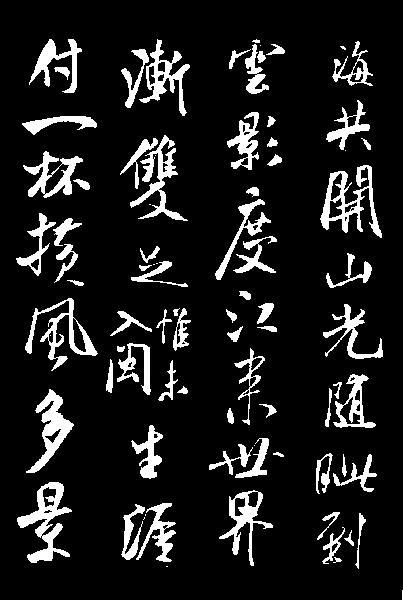 海共開山光隨眦到
雲影度江来世界
漸雙足惟未入閩生涯
付一杯横風多景